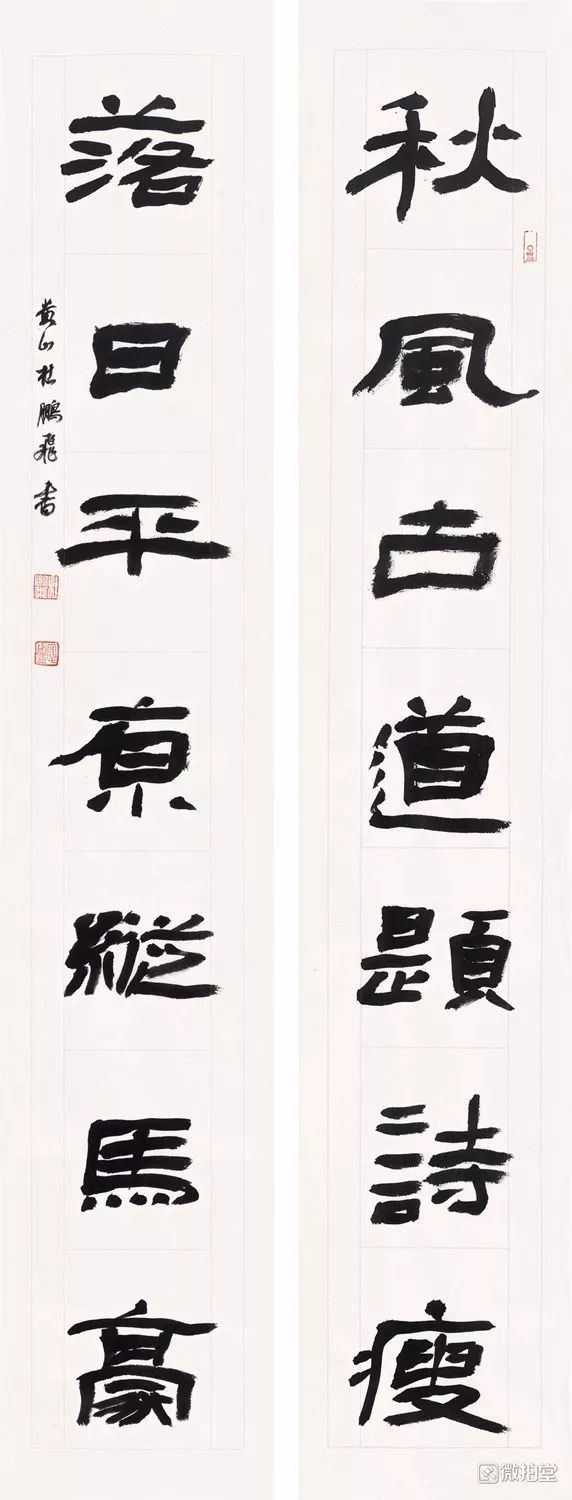 秋風古道題詩瘦
落日平原縱馬豪
黃山杜鵬飛書
微拍堂